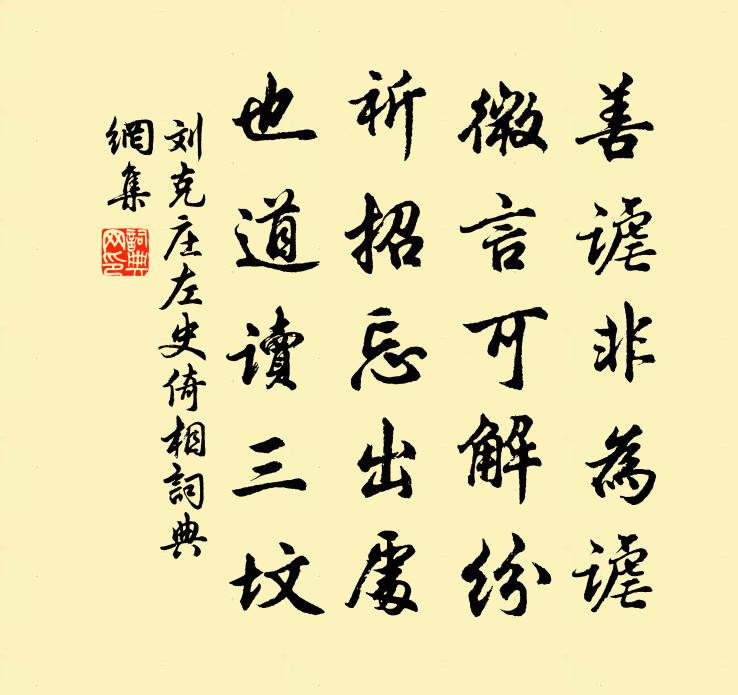 善謔非為謔
微言可解紛
祈招忘出處
也道讀三坟
刘克庄左史倚相詞典
網集
詞典
网印